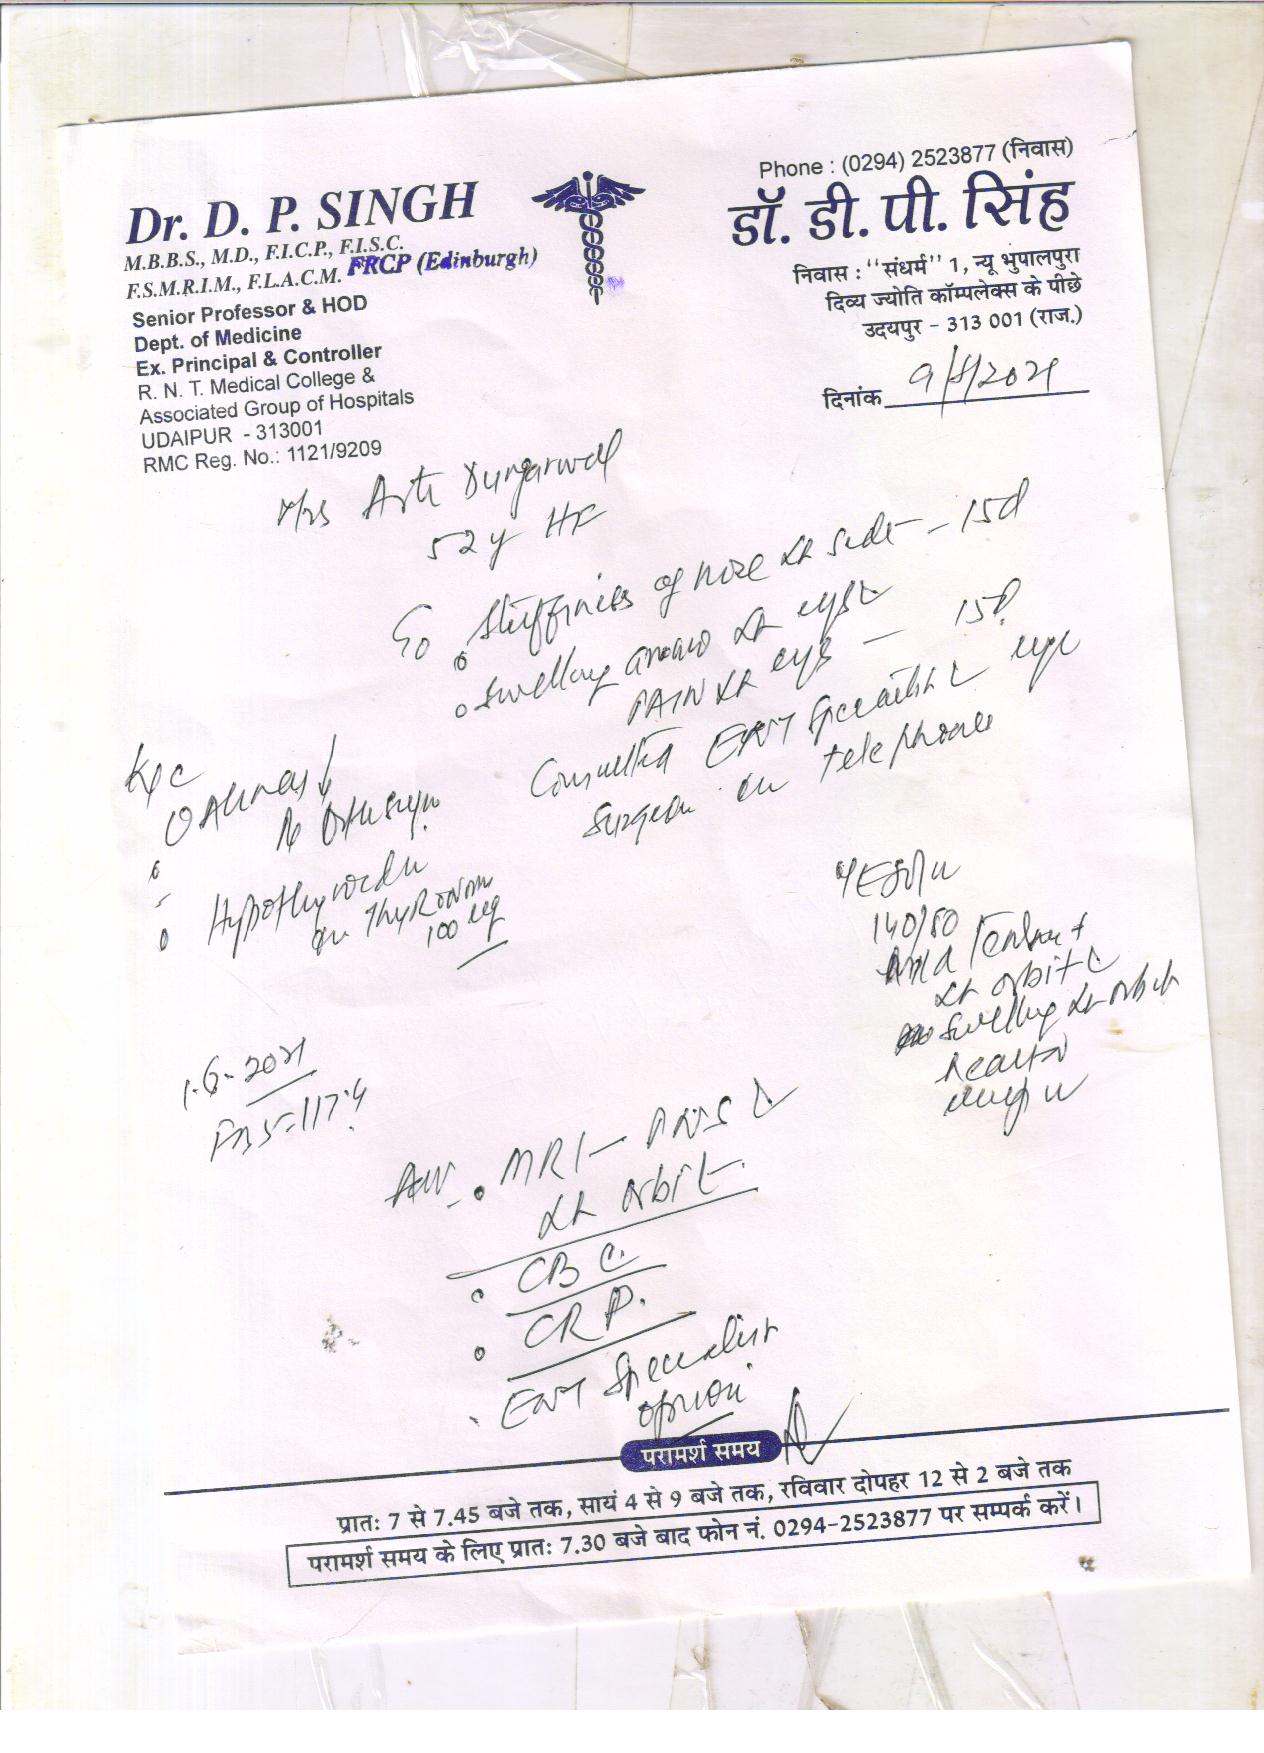 Phone : (0294) 2523877 (निवास)
Dr. D. P. SINGH
M.B.B.S., M.D., F.I.C.P., F.I.S.C.
F.S.M.R.I.M., F.L.A.C.M. FRCP (Edinburgh)
Senior Professor & HOD
Dept. of Medicine
Ex. Principal & Controller
R. N. T. Medical College &
Associated Group of Hospitals
UDAIPUR - 313001
RMC Reg. No.: 1121/9209
डॉ. डी. पी. सिंह
निवास : "संधर्म" 1, न्यू भुपालपुरा
दिव्य ज्योति कॉम्पलेक्स के पीछे
उदयपुर - 313 001 (राज.)
दिनांक 9/ /2021
Mrs Arti Dungarwal
52y HF
stuffiness of nose Lt side - 15d
swelling around Lt eye
PAIN Lt eye - 15d
Consulted ENT Specialist eye
surgeon on telephone
K/C
Hypothyroidu
on ThyRonorm
100 ug
140/80
Lt orbit
swelling Lt orbit
1-6-2021
FBS-117.4
Adv. MRI - PNS
Lt orbit.
CBC.
CRP.
ENT Specialist
opinion
परामर्श समय
प्रातः 7 से 7.45 बजे तक, सायं 4 से 9 बजे तक, रविवार दोपहर 12 से 2 बजे तक
परामर्श समय के लिए प्रातः 7.30 बजे बाद फोन नं. 0294-2523877 पर सम्पर्क करें।